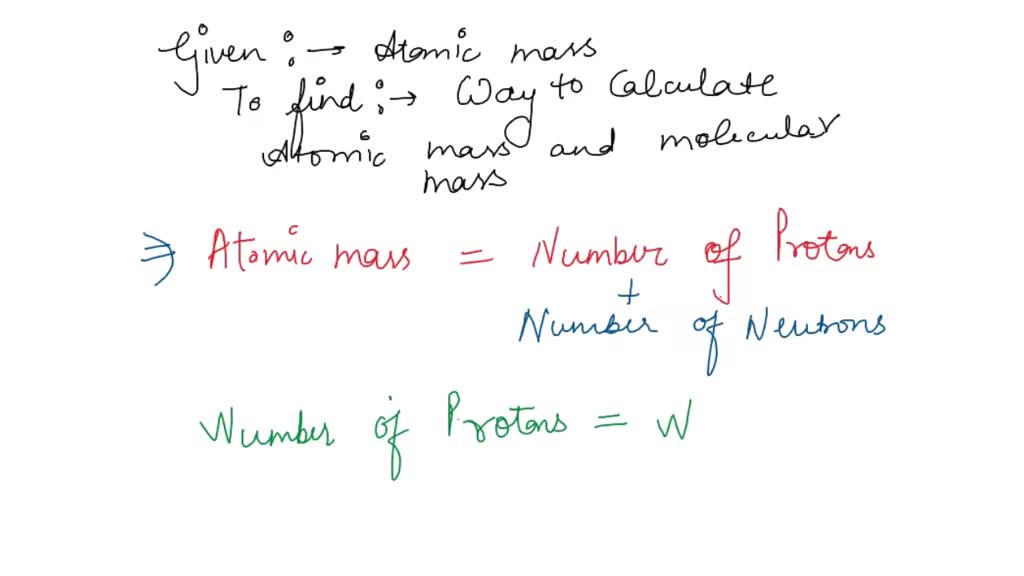 Given :→ Atomic mass
To find :→ Way to Calculate
Atomic mass and molecular
mass
⇒ Atomic mass = Number of Protons
+
Number of Neutrons
Number of Protons = N